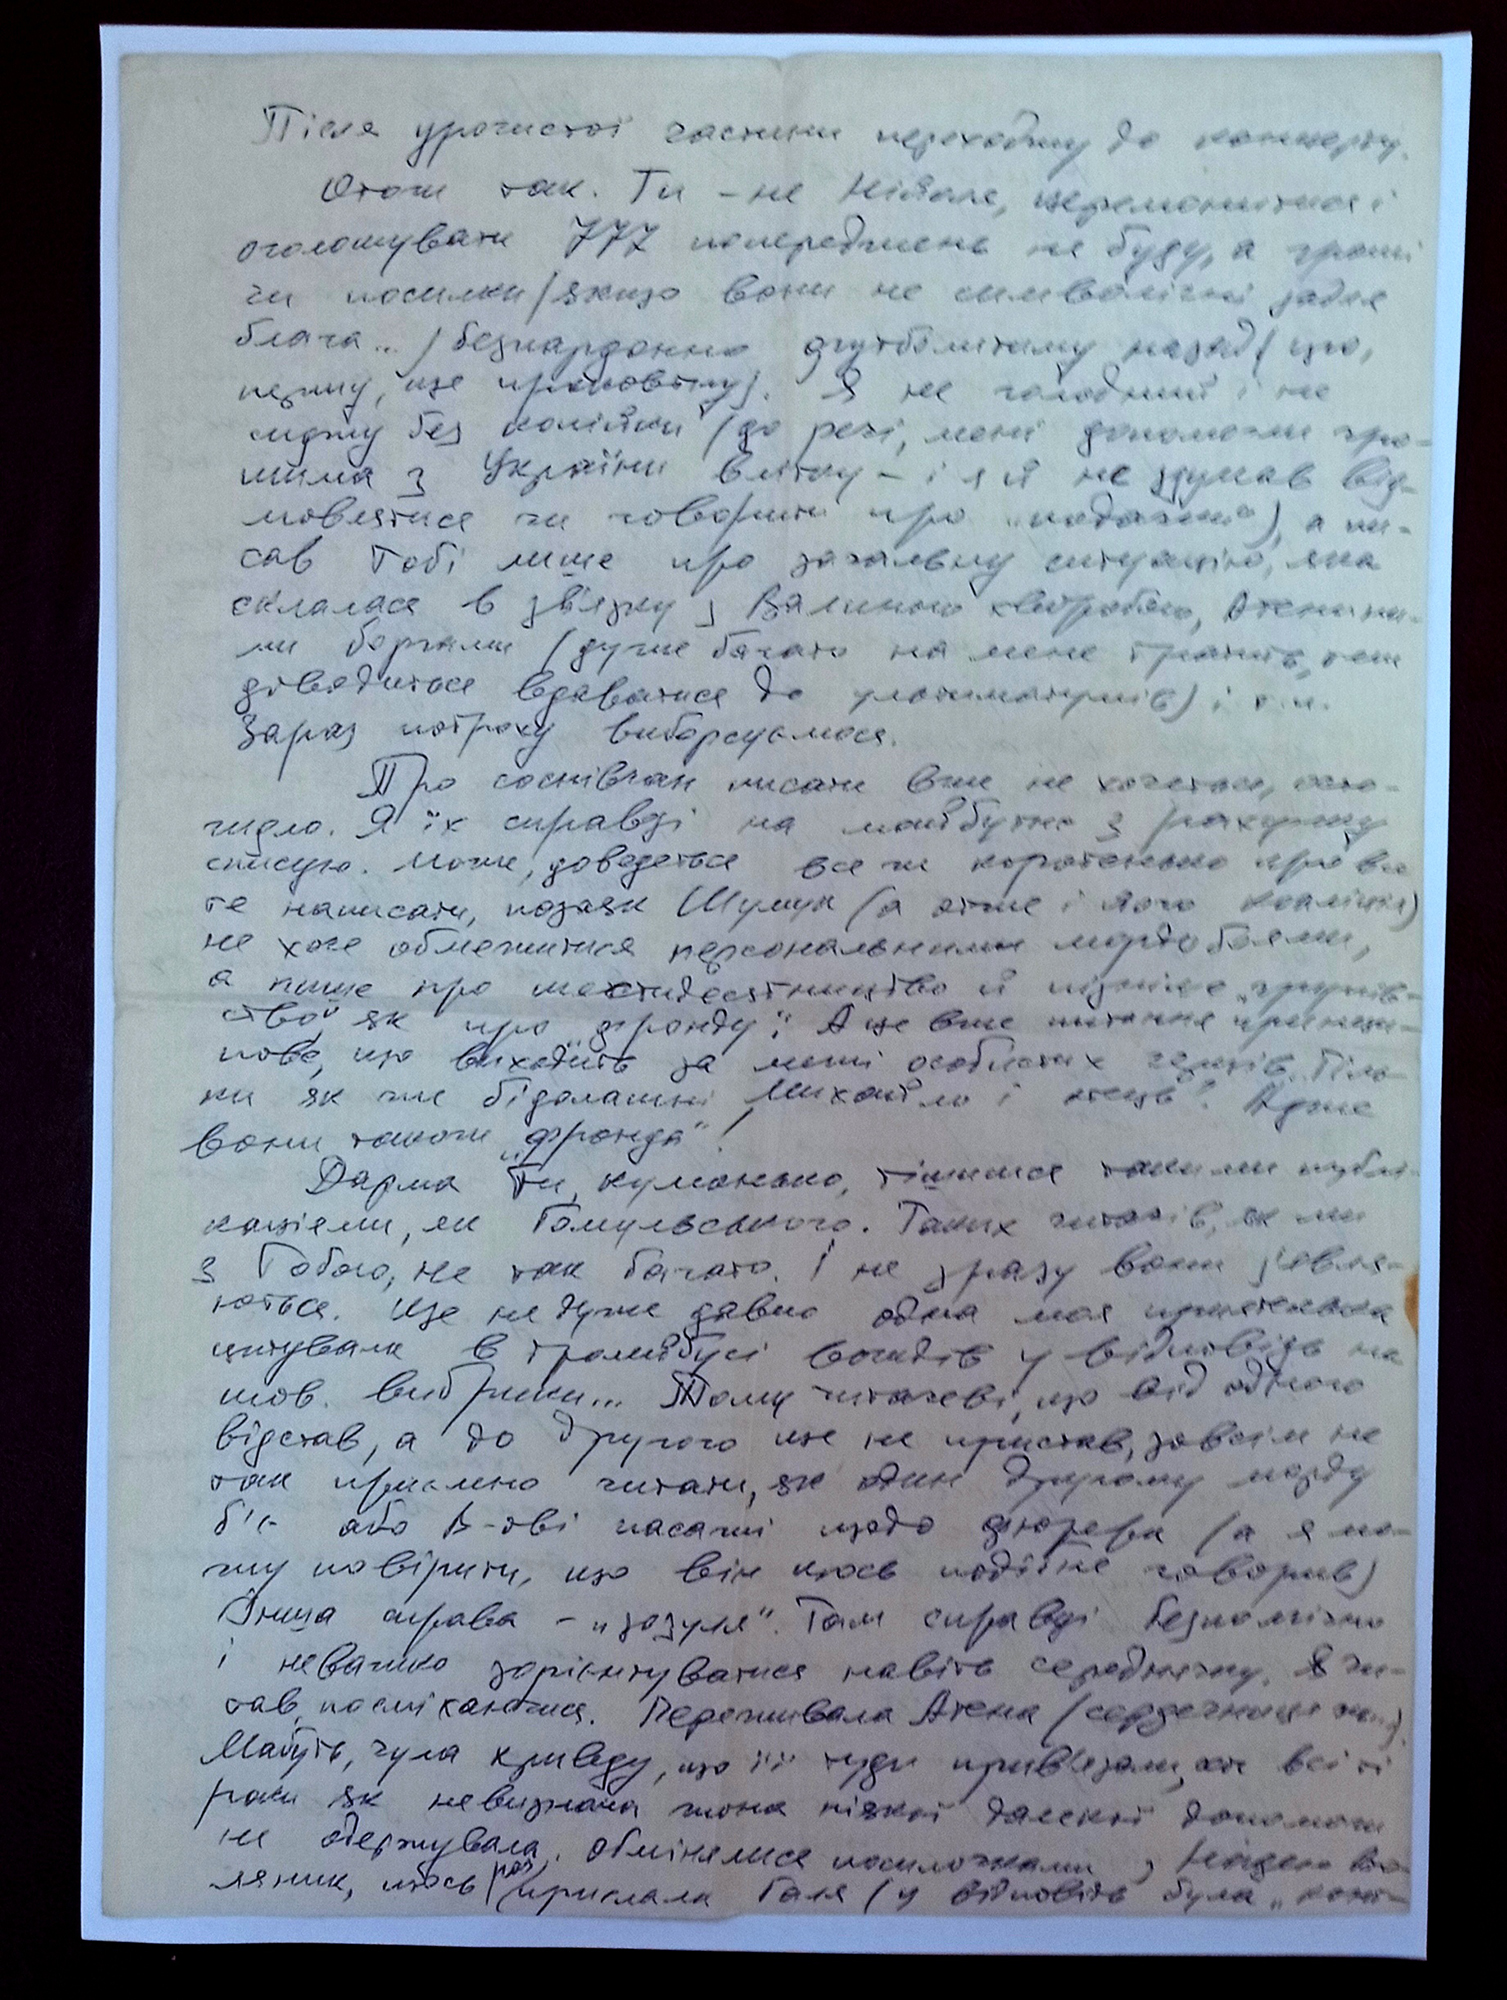 Після урочистої частини переходжу до концерту.
Отож так. Ти – не Ніболе, церемонитися і
оголошувати 777 попереджень не буду, а гроші
чи посилки (якщо вони не символічні задля
блага...) безпардонно футболитиму назад (що,
певну, ще промовчу). Я не голодний і не
сиджу без копійки (до речі, мені допомогли гро-
шима з України влітку – і я й не думав від-
мовлятися чи говорити про „подачки"), а пи-
сав Тобі лише про загальну ситуацію, яка
склалася в зв'язку з Валиною хворобою, Атениними
боргами (дуже багато на мене тратить, аж
доводиться вдаватися до ультиматумів) і т.п.
Зараз потроху виборсуємося.
Про соснівчан писати вже не хочеться, осто-
чидло. Я їх справді на майбутнє з рахунку
списую. Може, доведеться все ж коротенько про все
те написати, позаяк Шумук (а отже і його коаліція)
не хоче обмежитися персональними мордобоями,
а пише про шестидесятництво й пізніше „групів-
ство", як про „фронду". А це вже питання принци-
пове, що виходить за межі особистих чеснот. Тіль-
ки як же бідолашні Михайло і отець? Адже
вони також „фронда"!
Дарма Ти, куманько, тішишся такими публі-
каціями, як Гомулвського. Таких читачів, як ми
з Тобою, не так багато. І не зразу вони з'явля-
ються. Ще не дуже давно одна моя приятелька
цитувала в тролейбусі вождів у відповідь на
шов. вибрики... Тому читачеві, що від одного
відстав, а до другого ще не пристав, зовсім не
так приємно читати, як один другому морду
б'є або В-ові пасажі щодо фюрера (а я мо-
жу повірити, що він щось подібне говорив)
Інша справа – „зозуля". Там справді безпомічно
і неважко зорієнтуватися навіть середнячку. Я чи-
тав, посміхаючися. Переживала Атена (сердечниця ж..)
Мабуть, чула кривду, що її туди прив'язали, хоч всі ті
роки як невизнана жона ніякої далекої допомоги
не одержувала. Обмінялися посилочками з Надею
щось раз прислала Галя (у відповідь була